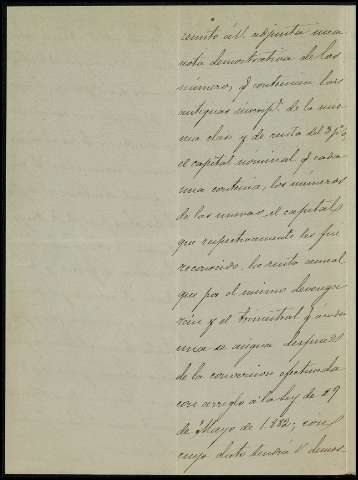 remito á V. adjunta una
nota demostrativa de los
números q contenian las
antiguas inscrip.s de la mis
ma clase y de renta del 3 p%
el capital nominal q cada
una contenia, los números
de las nuevas, el capital
que respectivamente les fue
reconocido, la renta anual
que por el mismo devenga
rán y el trimestral q á cada
una se asigna despues
de la conversion efectuada
con arreglo á la Ley de 29
de Mayo de 1882; con
cuyo dato tendrá V. demos